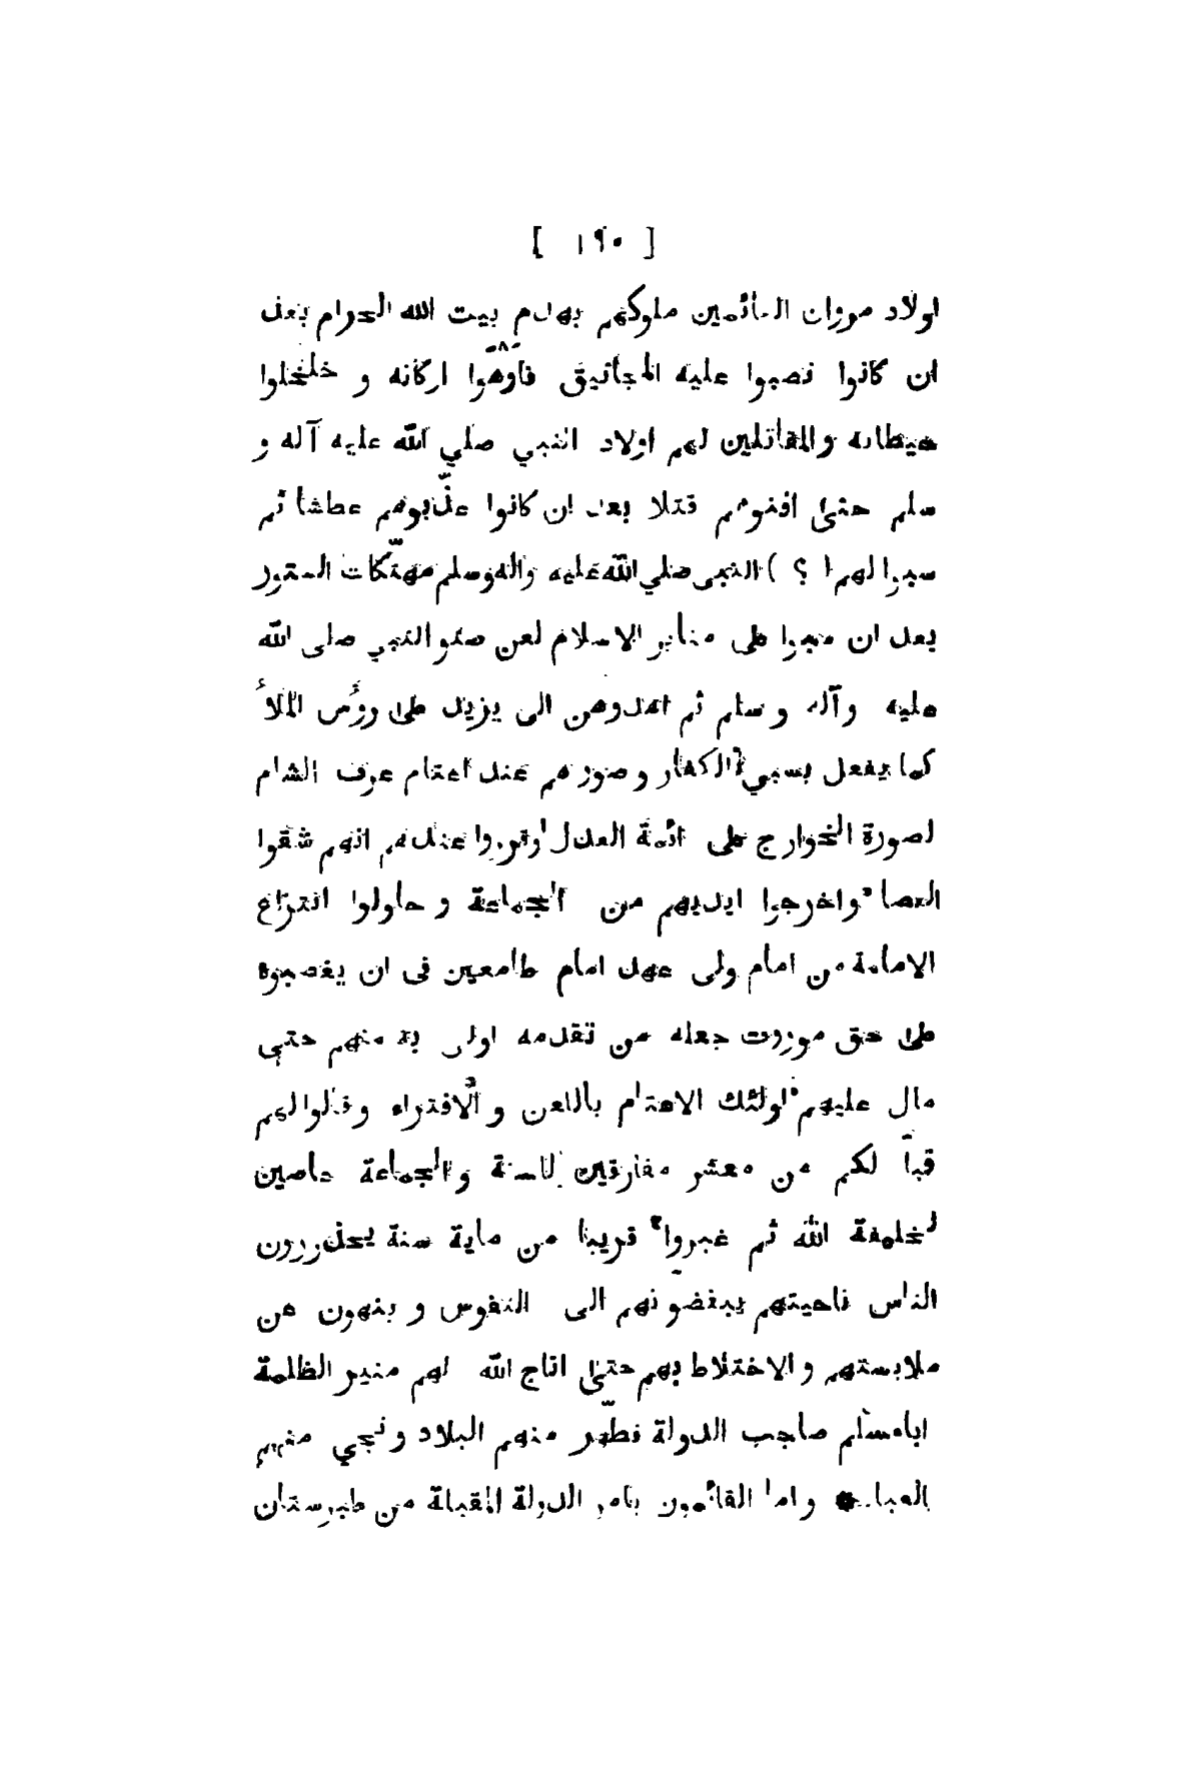 [ ١٩٠ ]
اولاد مروان الدائمين ملوكهم بهدم بيت الله الحرام بعد
ان كانوا نصبوا عليه المجانيق فاوهوا اركانه و خلخلوا
حيطانه والمقاتلين لهم اولاد النبي صلي الله عليه آله و
سلم حتى افنوهم قتلا بعد ان كانوا عذّبوهم عطشا ثم
سبوا لهم ( ؟ ) النبى صلي الله عليه وآله وسلم مهتّكات الستور
بعد ان سبوا على منابر الاسلام لعن صنو النبي صلى الله
عليه وآله و سلم ثم اهدوهن الى يزيد على رؤس الملأ
كما يفعل بسبي الكفار و صورهم عند اغتام عرف الشام
لصورة الخوارج على ائمة العدل وقرروا عندهم انهم شقوا
العصا واخرجوا ايديهم من الجماعة و حاولوا انتزاع
الامامة من امام ولى عهد امام طامعين فى ان يغصبوه
على حق موروث جعله من تقدمه اولى به منهم حتى
مال عليهم اولئك الاغتام باللعن و الافتراء وقالوا لهم
قبّاً لكم من معشر مفارقين للسنة والجماعة عاصين
لخليفة الله ثم غبروا قريبا من ماية سنة يحذرون
الناس ناحيتهم يبغضونهم الى النفوس و ينهون عن
ملابستهم و الاختلاط بهم حتى اتاح الله لهم منير الظلمة
ابا مسلم صاحب الدولة فطهّر منهم البلاد و نجي منهم
العباد و اما القائمون بامر الدولة المقبلة من طبرستان